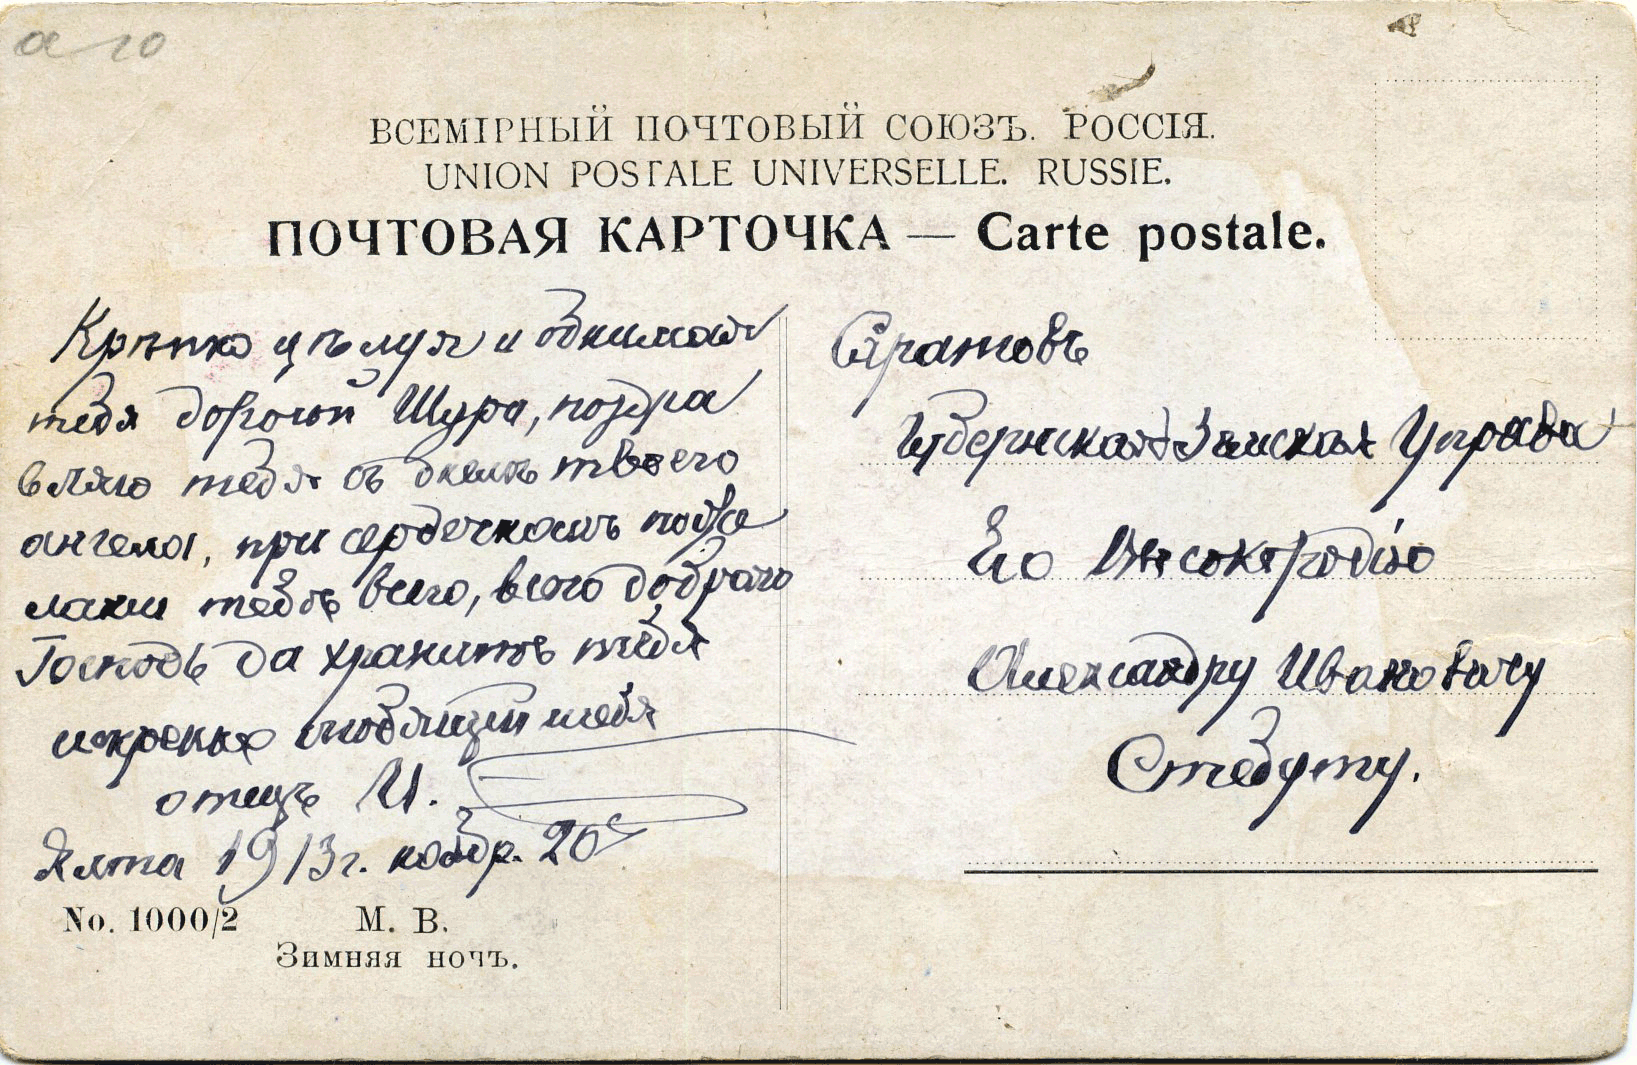 а 10
ВСЕМІРНЫЙ ПОЧТОВЫЙ СОЮЗЪ. РОССІЯ.
UNION POSTALE UNIVERSELLE. RUSSIE.
ПОЧТОВАЯ КАРТОЧКА — Carte postale.
Крѣпко цѣлуя и обнимая
тебя дорогой Шура, поздра
вляю тебя съ днемъ твоего
ангела, при сердечномъ поже
лании тебѣ всего, всего доброго
Господь да хранитъ тебя
искренне любящий тебя
отецъ И.
Ялта 1913 г. ноябр. 20
No. 1000/2 М. В.
Зимняя ночь.
Саратовъ
Губернская Земская Управа
Его Высокородію
Александру Ивановичу
Стебуту.